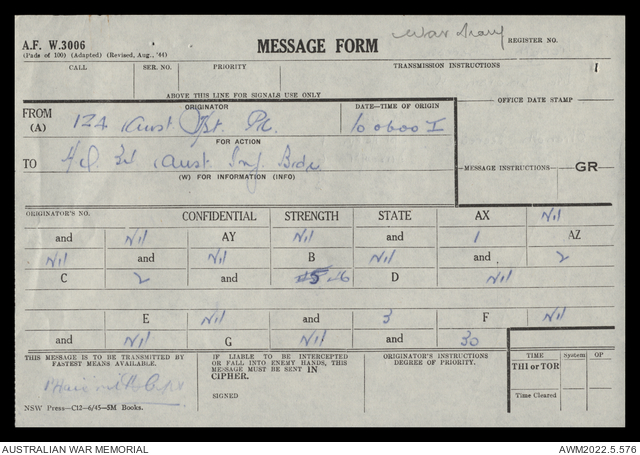 A.F. W.3006
(Pads of 100) (Adapted) (Revised, Aug., '44)
MESSAGE FORM
War Diary
REGISTER NO.
CALL SER. NO. PRIORITY TRANSMISSION INSTRUCTIONS
1
ABOVE THIS LINE FOR SIGNALS USE ONLY
OFFICE DATE STAMP
FROM
(A)
ORIGINATOR
124 Aust Pl.
DATE—TIME OF ORIGIN
100600 I
FOR ACTION
TO
3rd Aust. Inf. Bde
(W) FOR INFORMATION (INFO)
MESSAGE INSTRUCTIONS GR
ORIGINATOR'S NO. CONFIDENTIAL STRENGTH STATE AX Nil
and Nil AY Nil and 1 AZ
Nil and Nil B Nil and 2
C 2 and D Nil
E Nil and 3 F Nil
and Nil G Nil and 30
THIS MESSAGE IS TO BE TRANSMITTED BY
FASTEST MEANS AVAILABLE.
Capt
IF LIABLE TO BE INTERCEPTED
OR FALL INTO ENEMY HANDS, THIS
MESSAGE MUST BE SENT IN
CIPHER.
SIGNED
ORIGINATOR'S INSTRUCTIONS
DEGREE OF PRIORITY.
TIME System OP
THI or TOR
Time Cleared
NSW Press—C12—6/45—5M Books.
AUSTRALIAN WAR MEMORIAL
AWM2022.5.576